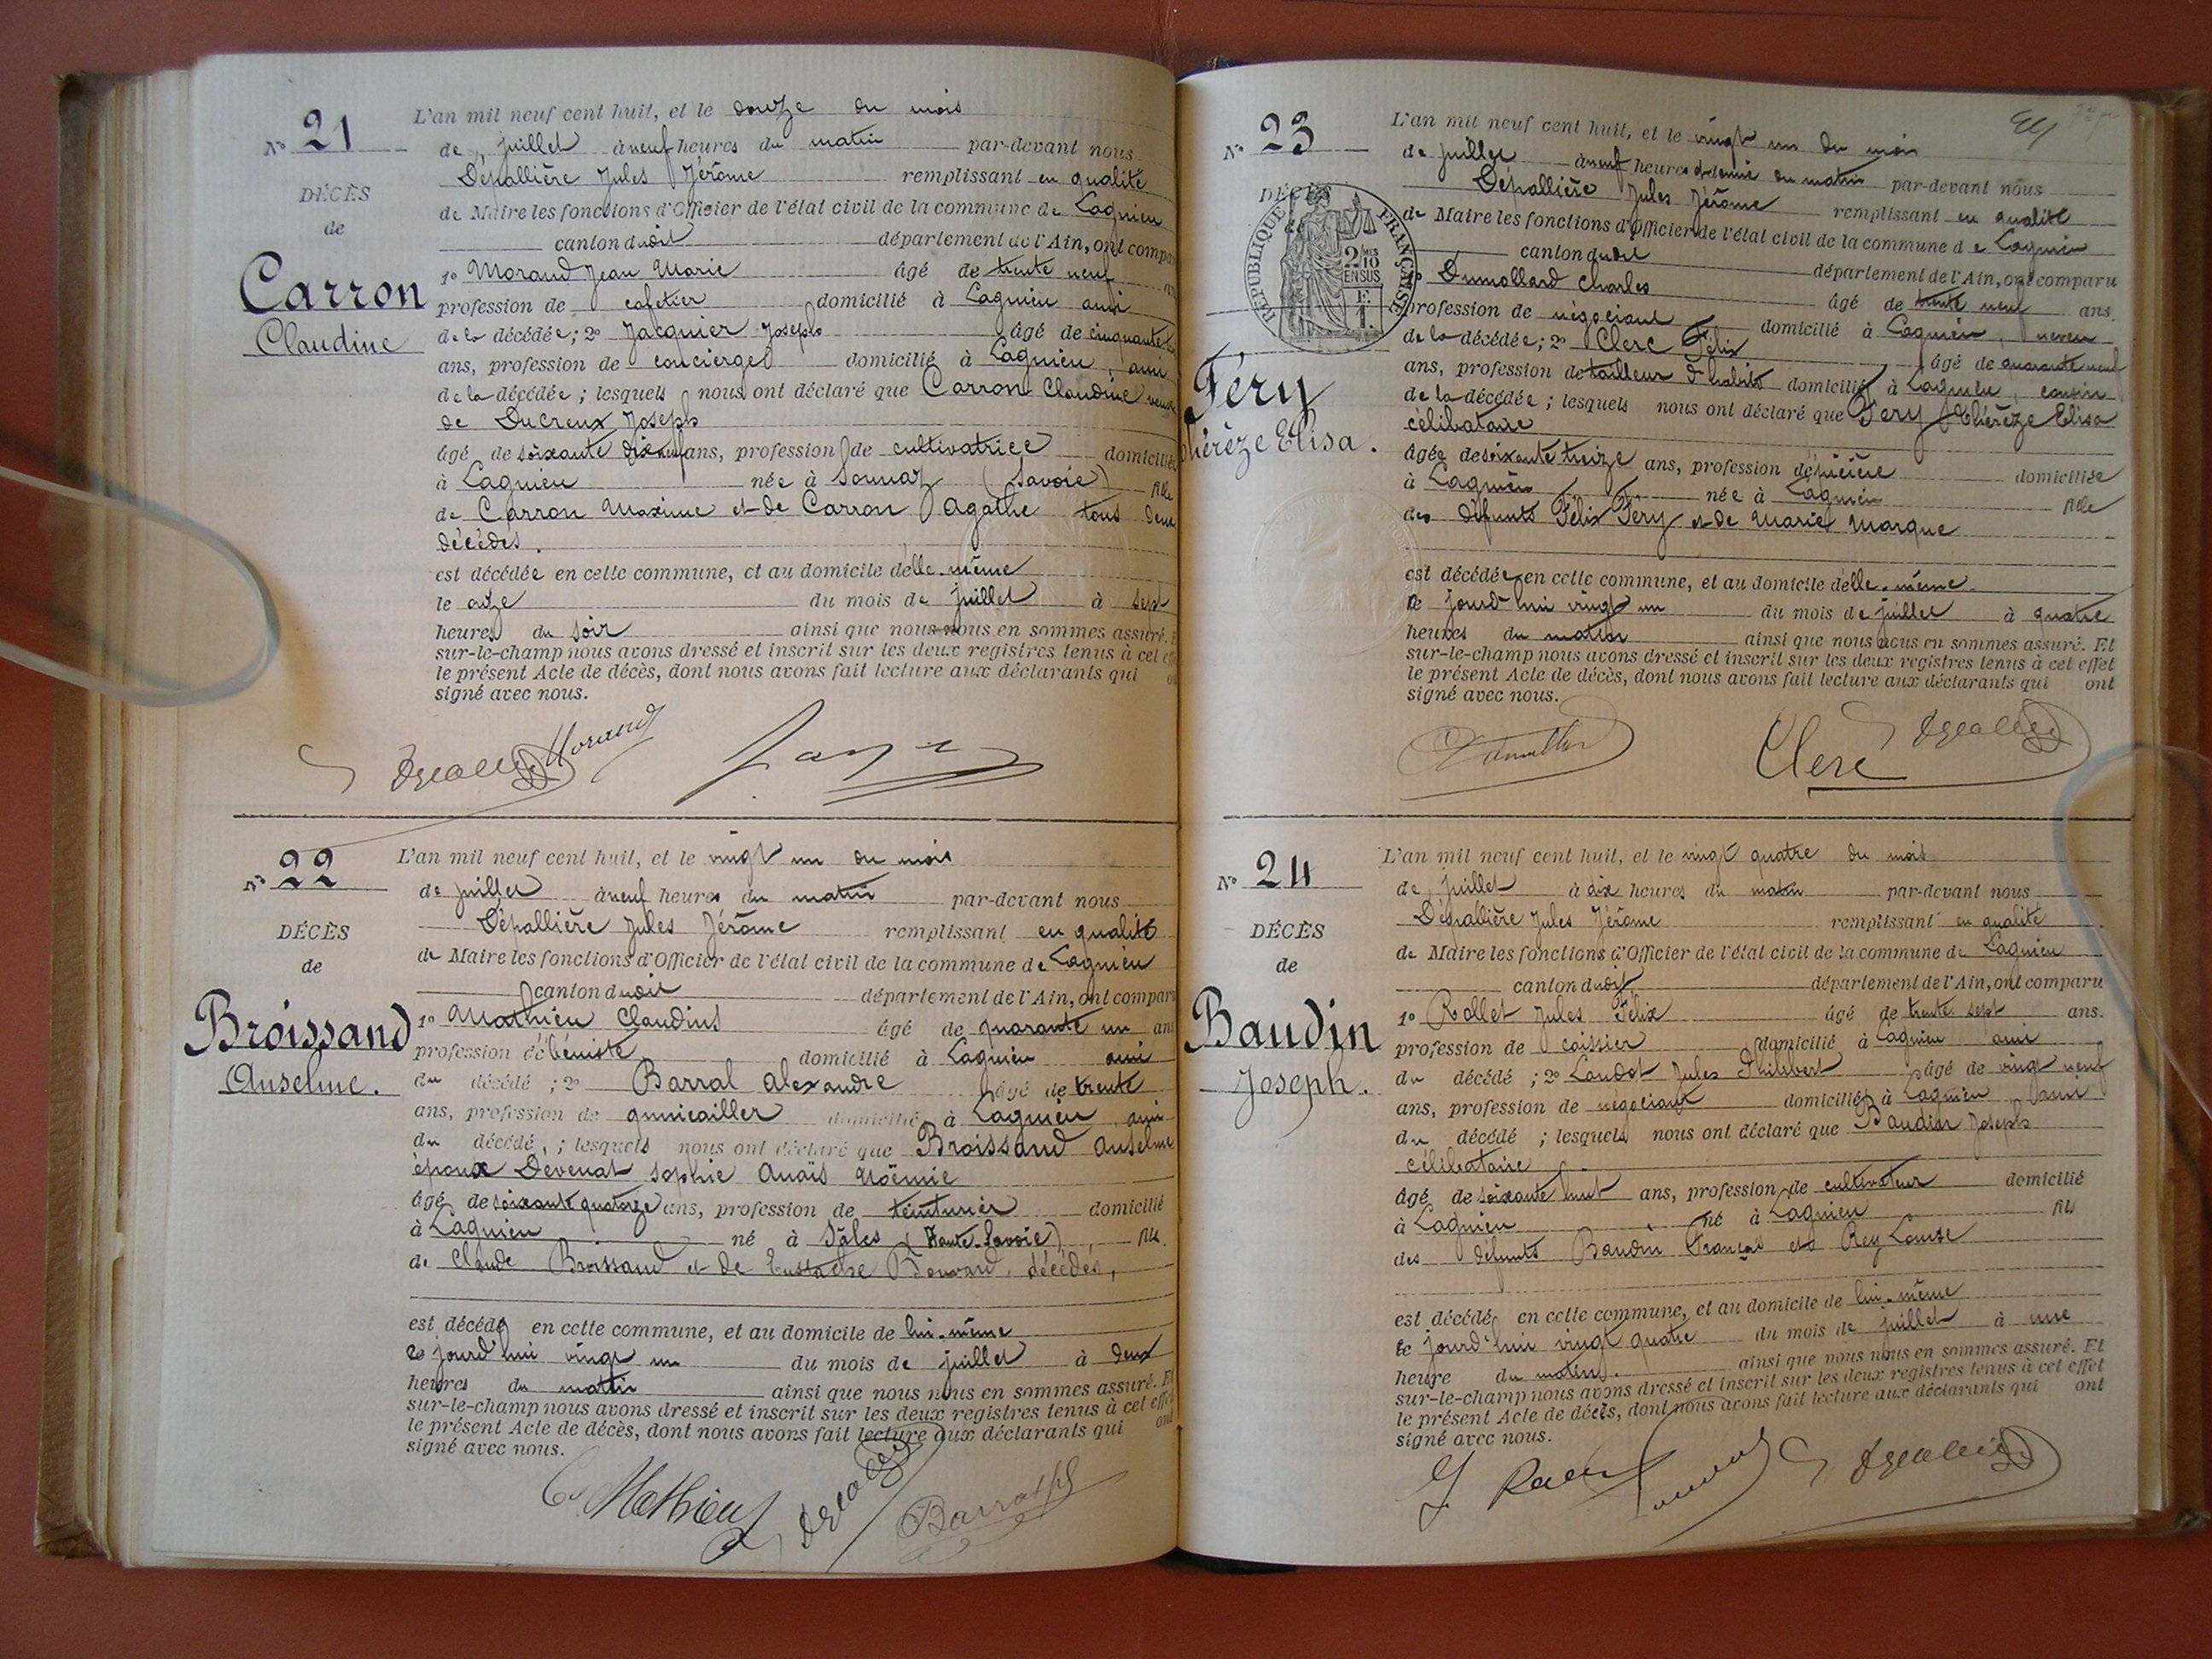 N° 21
DÉCÈS
de
Carron
Claudine
L'an mil neuf cent huit, et le douze du mois
de juillet à neuf heures du matin par-devant nous
Dépallière Jules Jérôme remplissant en qualité
de Maire les fonctions d'Officier de l'état civil de la commune de Lagnieu
canton dudit département de l'Ain, ont compa
1° Morand Jean Marie âgé de trente neuf
profession de cafetier domicilié à Lagnieu ami
de la décédée; 2° Jacquier Joseph âgé de cinquante
ans, profession de concierge domicilié à Lagnieu, ami
de la décédée; lesquels nous ont déclaré que Carron Claudine veuve
de Ducreux Joseph
âgé de soixante dix neuf ans, profession de cultivatrice domiciliée
à Lagnieu née à Sonnaz (Savoie) fille
de Carron Maxime et de Carron Agathe tous deux
décédés.
est décédée en cette commune, et au domicile d'elle-même
le onze du mois de juillet à sept
heures du soir ainsi que nous nous en sommes assuré.
sur-le-champ nous avons dressé et inscrit sur les deux registres tenus à cet
le présent Acte de décès, dont nous avons fait lecture aux déclarants qui
signé avec nous.
Morand
N° 22
DÉCÈS
de
Broissand
Anselme.
L'an mil neuf cent huit, et le vingt un du mois
de juillet à neuf heures du matin par-devant nous
Dépallière Jules Jérôme remplissant en qualité
de Maire les fonctions d'Officier de l'état civil de la commune de Lagnieu
canton dudit département de l'Ain, ont comparu
1° Mathieu Claudius âgé de quarante un ans
profession d'ébéniste domicilié à Lagnieu ami
du décédé; 2° Barral Alexandre âgé de trente
ans, profession de quincailler domicilié à Lagnieu, ami
du décédé, ; lesquels nous ont déclaré que Broissand Anselme
époux Devenat Sophie Anaïs Noëmie
âgé de soixante quatorze ans, profession de teinturier domicilié
à Lagnieu né à Sâles (Haute-Savoie), fils
de Claude Broissand et de Eustache Bouvard, décédés,
est décédé en cette commune, et au domicile de lui-même
ce jourd'hui vingt un du mois de juillet à deux
heures du matin ainsi que nous nous en sommes assuré. Et
sur-le-champ nous avons dressé et inscrit sur les deux registres tenus à cet effet
le présent Acte de décès, dont nous avons fait lecture aux déclarants qui ont
signé avec nous.
C. Mathieu
N° 23
DÉCÈS
RÉPUBLIQUE FRANÇAISE
2/10 EN SUS
F. 1.
Féry
Thérèze Elisa.
L'an mil neuf cent huit, et le vingt un du mois
de juillet à neuf heures et demie du matin par-devant nous
Dépallière Jules Jérôme remplissant en qualité
de Maire les fonctions d'Officier de l'état civil de la commune de Lagnieu
canton dudit département de l'Ain, ont comparu
Dumollard Charles âgé de trente neuf ans.
profession de négociant domicilié à Lagnieu, neveu
de la décédée; 2° Clerc Félix âgé de quarante neuf
ans, profession de tailleur d'habits domicilié à Lagnieu, cousin
de la décédée; lesquels nous ont déclaré que Féry Thérèze Elisa
célibataire
âgée de soixante treize ans, profession d'épicière domiciliée
à Lagnieu née à Lagnieu fille
des défunts Félix Féry et de Marie Marque
est décédée en cette commune, et au domicile d'elle-même.
ce jourd'hui vingt un du mois de juillet à quatre
heures du matin ainsi que nous nous en sommes assuré. Et
sur-le-champ nous avons dressé et inscrit sur les deux registres tenus à cet effet
le présent Acte de décès, dont nous avons fait lecture aux déclarants qui ont
signé avec nous.
Clerc
N° 24
DÉCÈS
de
Baudin
Joseph.
L'an mil neuf cent huit, et le vingt quatre du mois
de juillet à dix heures du matin par-devant nous
Dépallière Jules Jérôme remplissant en qualité
de Maire les fonctions d'Officier de l'état civil de la commune de Lagnieu
canton dudit département de l'Ain, ont comparu
1° Rollet Jules Félix âgé de trente sept ans.
profession de caissier domicilié à Lagnieu ami
du décédé; 2° Laudot Jules Philibert âgé de vingt neuf
ans, profession de négociant domicilié à Lagnieu, ami
du décédé; lesquels nous ont déclaré que Baudin Joseph
célibataire
âgé de soixante huit ans, profession de cultivateur domicilié
à Lagnieu né à Lagnieu fils
des défunts Baudin François et Rey Louise
est décédé en cette commune, et au domicile de lui-même
ce jourd'hui vingt quatre du mois de juillet à une
heure du matin. ainsi que nous nous en sommes assuré. Et
sur-le-champ nous avons dressé et inscrit sur les deux registres tenus à cet effet
le présent Acte de décès, dont nous avons fait lecture aux déclarants qui ont
signé avec nous.